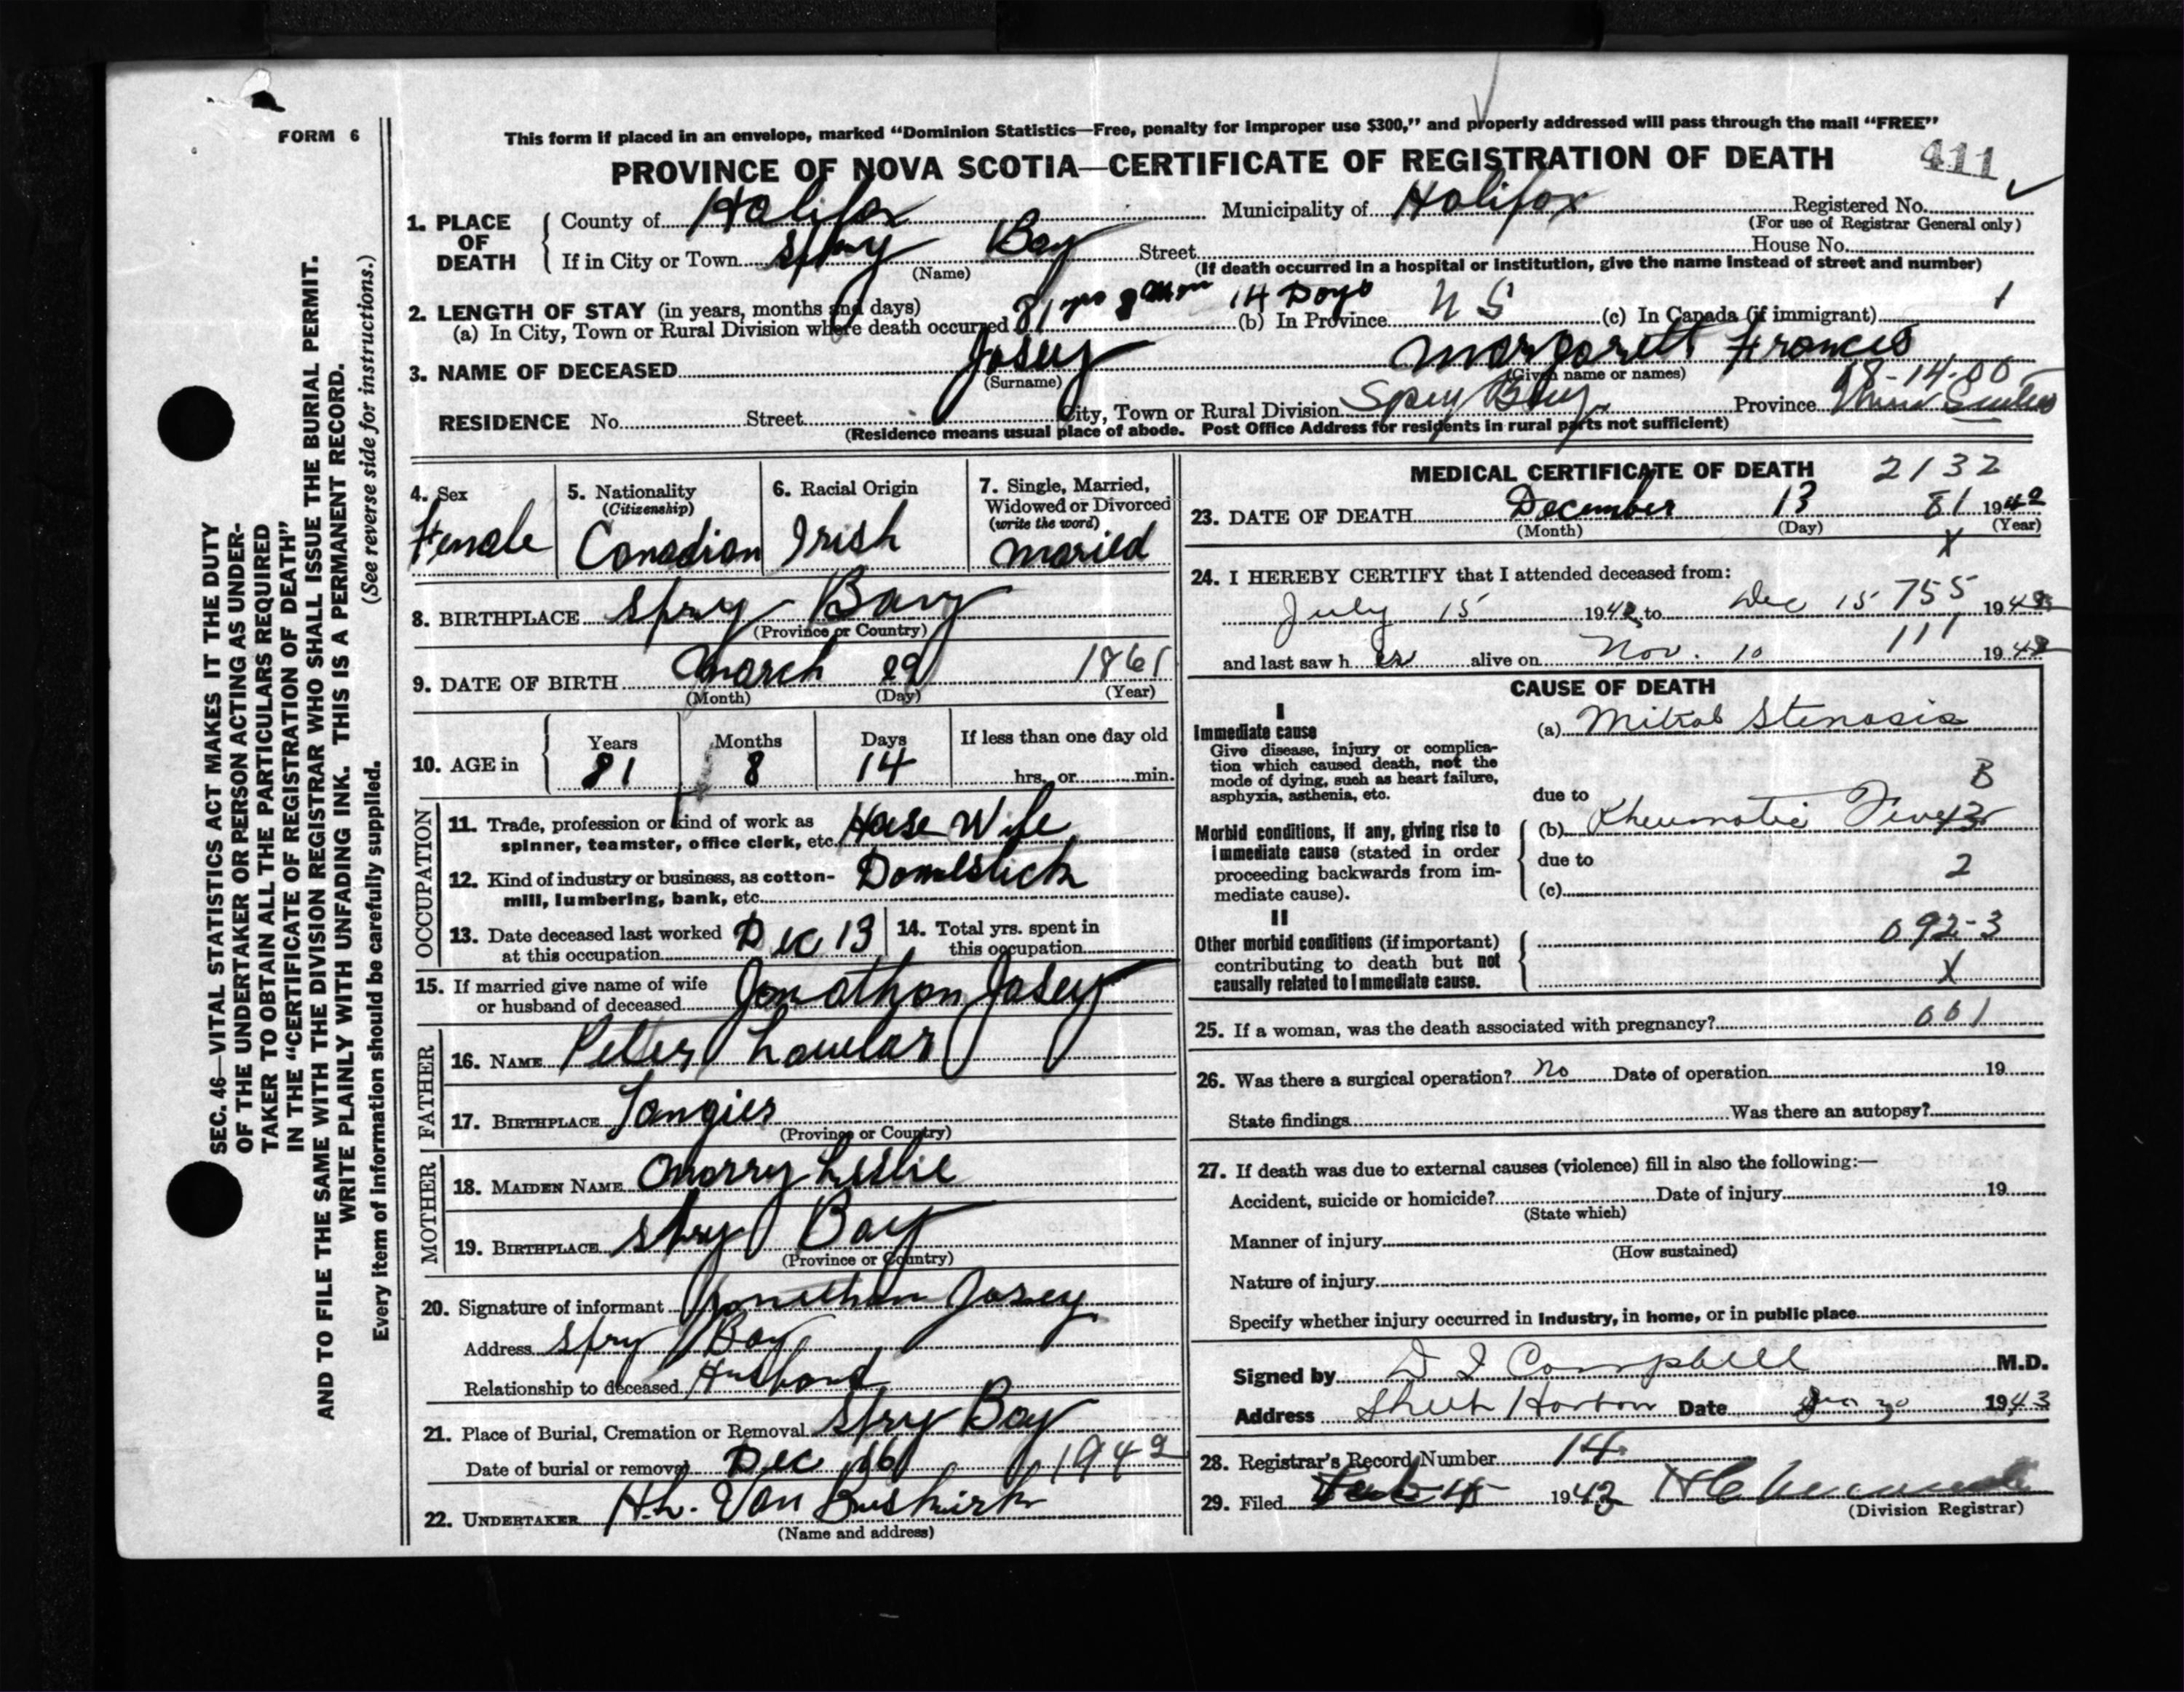 FORM 6
This form if placed in an envelope, marked "Dominion Statistics—Free, penalty for improper use $300," and properly addressed will pass through the mail "FREE"
PROVINCE OF NOVA SCOTIA—CERTIFICATE OF REGISTRATION OF DEATH 411
1. PLACE OF DEATH
County of Halifax Municipality of Halifax Registered No.
(For use of Registrar General only)
If in City or Town Spry Bay Street House No.
(Name) (If death occurred in a hospital or institution, give the name instead of street and number)
2. LENGTH OF STAY (in years, months and days)
(a) In City, Town or Rural Division where death occurred 81 yrs 8 Mon 14 Days (b) In Province N S (c) In Canada (if immigrant) 1
3. NAME OF DECEASED Josey Margarett Francis
(Surname) (Given name or names)
18-14-00
RESIDENCE No. Street City, Town or Rural Division Spry Bay Province Nova Scotia
(Residence means usual place of abode. Post Office Address for residents in rural parts not sufficient)
4. Sex
Female
5. Nationality
(Citizenship)
Canadian
6. Racial Origin
Irish
7. Single, Married, Widowed or Divorced
(write the word)
Maried
8. BIRTHPLACE Spry Bay
(Province or Country)
9. DATE OF BIRTH March 29 1861
(Month) (Day) (Year)
10. AGE in Years Months Days If less than one day old
81 8 14 hrs. or min.
OCCUPATION
11. Trade, profession or kind of work as
spinner, teamster, office clerk, etc. House Wife
12. Kind of industry or business, as cotton-
mill, lumbering, bank, etc. Domestick
13. Date deceased last worked
at this occupation Dec 13
14. Total yrs. spent in
this occupation
15. If married give name of wife
or husband of deceased Jonathon Josey
FATHER
16. NAME Peter Lawlar
17. BIRTHPLACE Tangier
(Province or Country)
MOTHER
18. MAIDEN NAME Marry Leslie
19. BIRTHPLACE Spry Bay
(Province or Country)
20. Signature of informant Jonathan Josey
Address Spry Bay
Relationship to deceased Husband
21. Place of Burial, Cremation or Removal Spry Bay
Date of burial or removal Dec 16 1942
22. UNDERTAKER H.L. Van Buskirk
(Name and address)
MEDICAL CERTIFICATE OF DEATH 2132
23. DATE OF DEATH December 13 81 1942
(Month) (Day) (Year)
X
24. I HEREBY CERTIFY that I attended deceased from:
July 15 1942 to Dec 15 755 1942
and last saw her alive on Nov. 10 111 1942
CAUSE OF DEATH
I
Immediate cause
Give disease, injury or complica-
tion which caused death, not the
mode of dying, such as heart failure,
asphyxia, asthenia, etc.
(a) Mitral Stenosis
B
due to
Morbid conditions, if any, giving rise to
immediate cause (stated in order
proceeding backwards from im-
mediate cause).
(b) Rheumatic Fever 13
due to
2
(c)
II
Other morbid conditions (if important)
contributing to death but not
causally related to immediate cause.
092-3
X
25. If a woman, was the death associated with pregnancy? 001
26. Was there a surgical operation? No Date of operation 19
State findings Was there an autopsy?
27. If death was due to external causes (violence) fill in also the following:—
Accident, suicide or homicide? Date of injury 19
(State which)
Manner of injury
(How sustained)
Nature of injury
Specify whether injury occurred in industry, in home, or in public place
Signed by D I Campbell M.D.
Address Sheet Harbor Date 1943
28. Registrar's Record Number 14
29. Filed 1943
(Division Registrar)
SEC. 46—VITAL STATISTICS ACT MAKES IT THE DUTY
OF THE UNDERTAKER OR PERSON ACTING AS UNDER-
TAKER TO OBTAIN ALL THE PARTICULARS REQUIRED
IN THE "CERTIFICATE OF REGISTRATION OF DEATH"
AND TO FILE THE SAME WITH THE DIVISION REGISTRAR WHO SHALL ISSUE THE BURIAL PERMIT.
WRITE PLAINLY WITH UNFADING INK. THIS IS A PERMANENT RECORD.
(See reverse side for instructions.)
Every item of information should be carefully supplied.